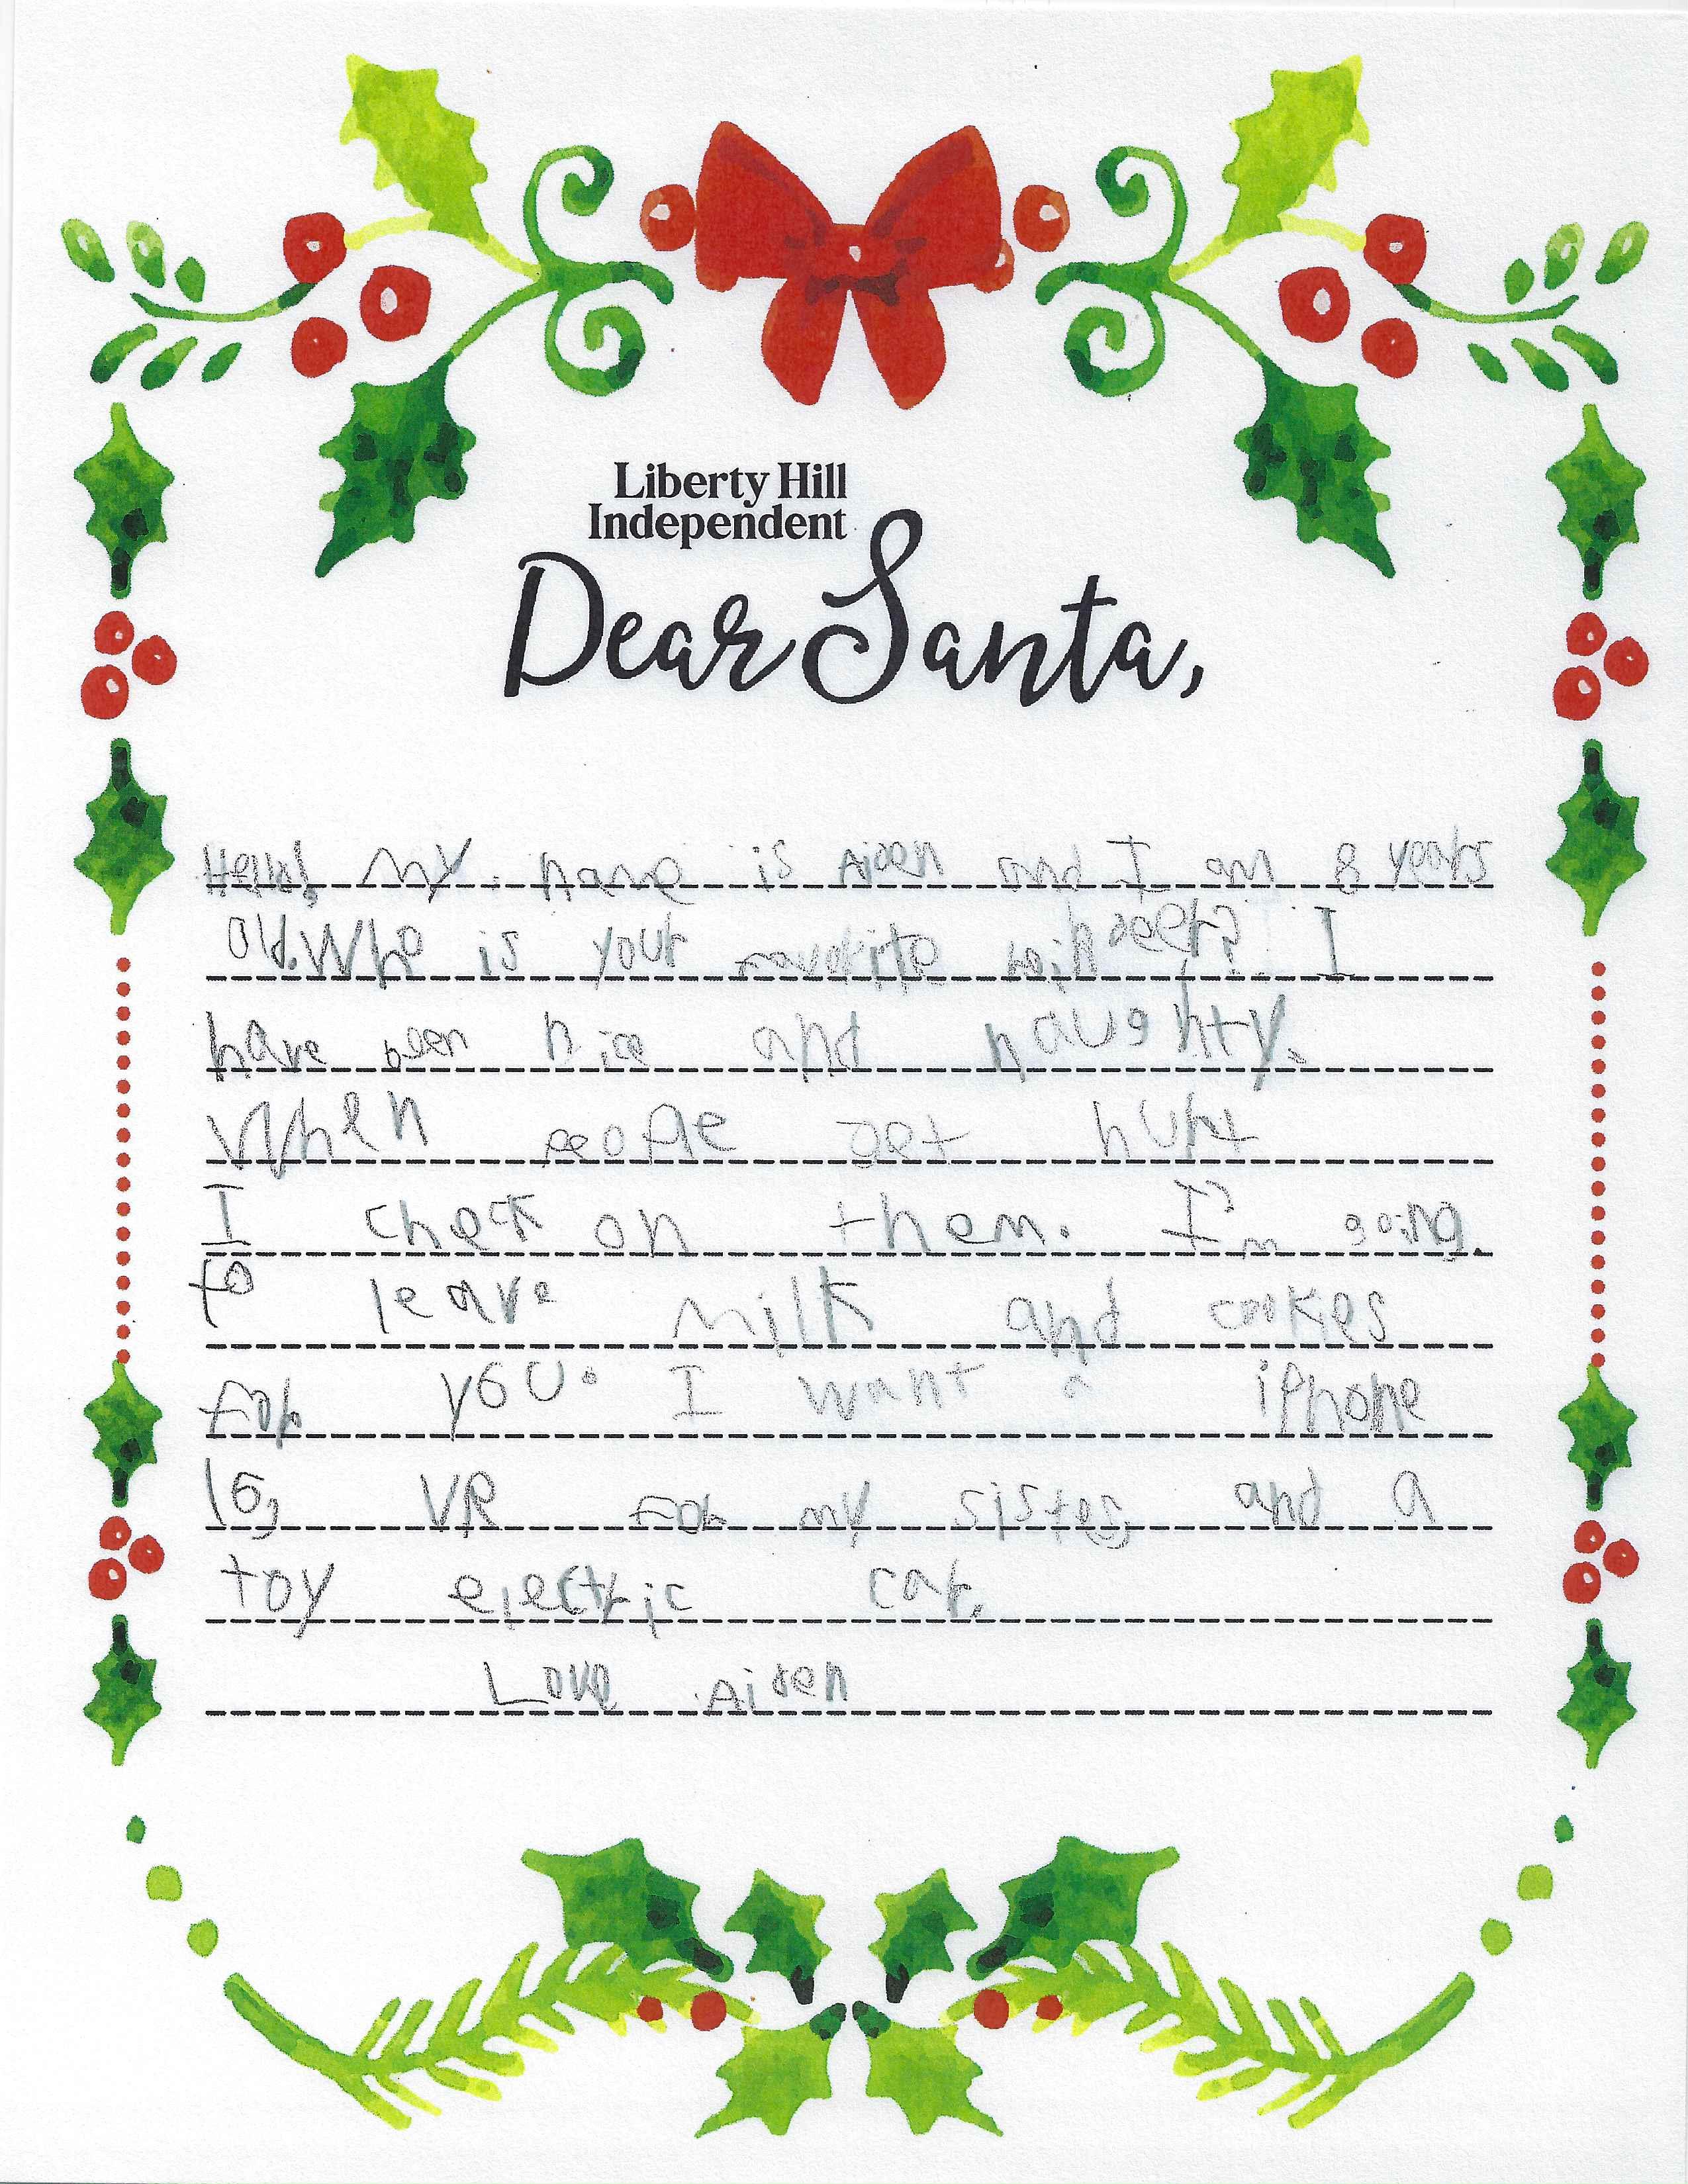 Liberty Hill
Independent
Dear Santa,
Hello! My name is Aiden and I am 8 years
old. Who is your favorite reindeer? I
have been nice and naughty.
When people get hurt
I check on them. I'm going
to leave milk and cookies
for you. I want a iPhone
16, VR for my sister, and a
toy electric car.
Love Aiden